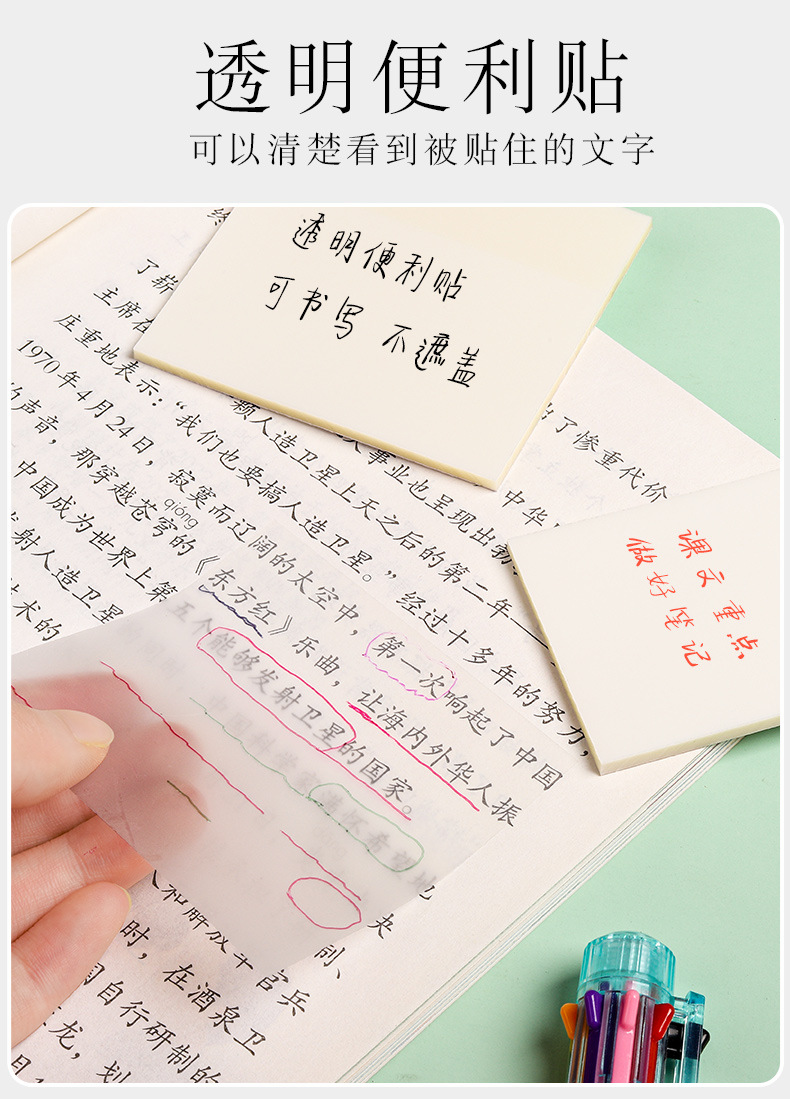 透明便利贴
可以清楚看到被贴住的文字
透明便利贴
可书写 不遮盖
课文重点
做好笔记
终
了崭
主席在
庄重地表示：“我们也要搞人造卫星。”经过十多年的努力，
1970年4月24日，寂寞而辽阔的太空中，第一次响起了中国
的声音，那穿越苍穹的《东方红》乐曲，让海内外华人振
qióng
中国成为世界上第
五个能够发射卫星的国家。
发射人造卫星
技术的
了惨重代价
中华
事业也呈现出勃
颗人造卫星上天之后的第二年
中国科学家满怀希望地
央
人和解放军官兵
时，在酒泉卫
国自行研制的
龙，划
月1